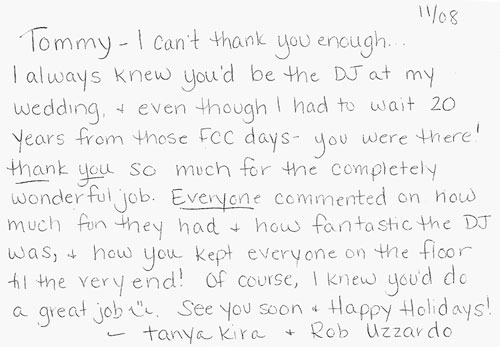 11/08
Tommy - I can't thank you enough...
I always knew you'd be the DJ at my
wedding, & even though I had to wait 20
years from those FCC days - you were there!
thank you so much for the completely
wonderful job. Everyone commented on how
much fun they had & how fantastic the DJ
was, & how you kept everyone on the floor
til the very end! Of course, I knew you'd do
a great job :). See you soon & Happy Holidays!
- tanya Kira & Rob Uzzardo